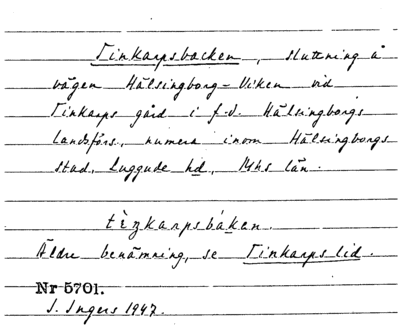 Tinkarpsbacken, sluttning å
vägen Hälsingborg-Viken vid
Tinkarps gård i f.d. Hälsingborgs
landsförs., numera inom Hälsingborgs
stad, Luggude hd, Mhs län.
tèŋkarpsbáken.
Äldre benämning, se Tinkarps lid.
Nr 5701.
I. Ingers 1947.